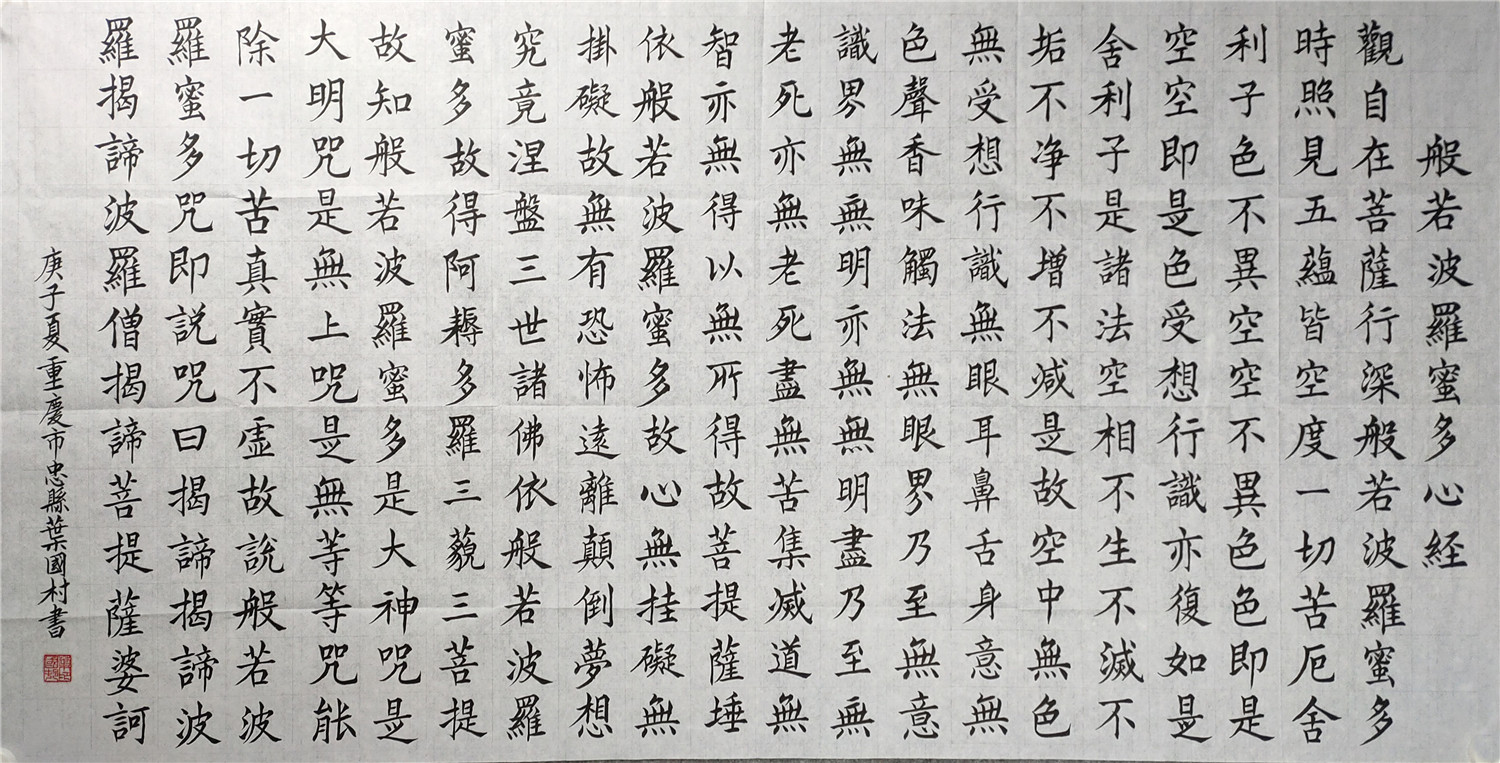 般若波羅蜜多心経
觀自在菩薩行深般若波羅蜜多
時照見五蘊皆空度一切苦厄舍
利子色不異空空不異色色即是
空空即是色受想行識亦復如是
舍利子是諸法空相不生不滅不
垢不净不增不减是故空中無色
無受想行識無眼耳鼻舌身意無
色聲香味觸法無眼界乃至無意
識界無無明亦無無明盡乃至無
老死亦無老死盡無苦集滅道無
智亦無得以無所得故菩提薩埵
依般若波羅蜜多故心無挂礙無
掛礙故無有恐怖遠離顛倒夢想
究竟涅盤三世諸佛依般若波羅
蜜多故得阿耨多羅三藐三菩提
故知般若波羅蜜多是大神咒是
大明咒是無上咒是無等等咒能
除一切苦真實不虛故說般若波
羅蜜多咒即説咒曰揭諦揭諦波
羅揭諦波羅僧揭諦菩提薩婆訶
庚子夏重慶市忠縣葉國村書